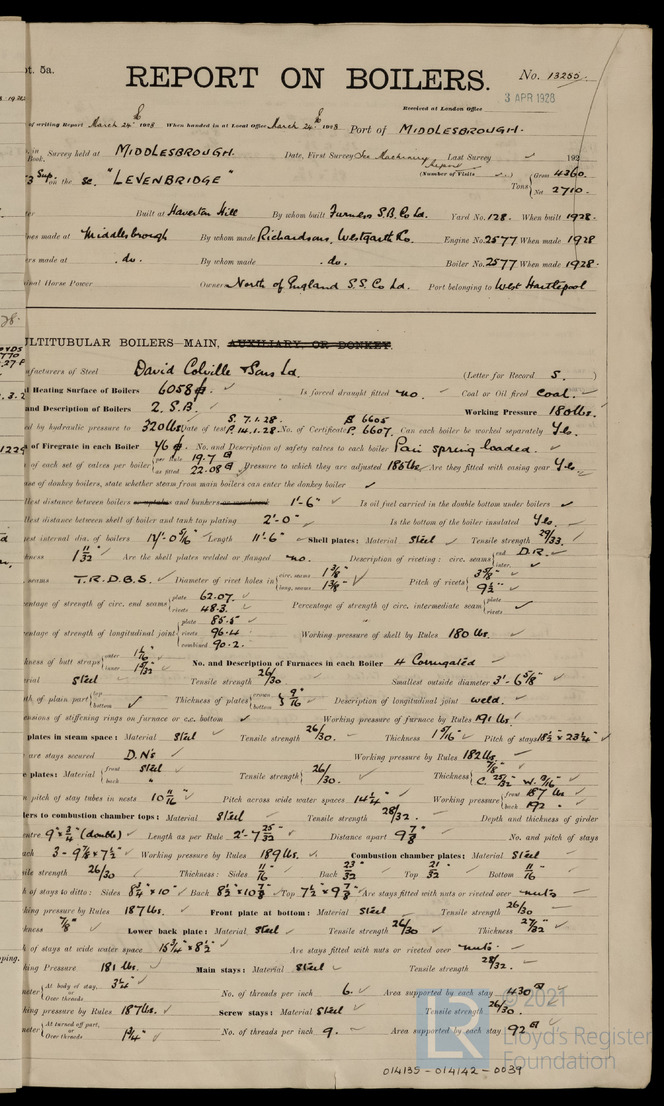 pt. 5a.
REPORT ON BOILERS.
No. 13255.
3 APR 1928
Received at London Office
of writing Report March 24th 1928 When handed in at Local Office March 24th 1928 Port of MIDDLESBROUGH.
Survey held at MIDDLESBROUGH. Date, First Survey See Machinery Report Last Survey 192
Book. (Number of Visits )
Sup. on the Sc. "LEVENBRIDGE" Tons { Gross 4360. Net 2710.
Built at Haverton Hill By whom built Furness S.B. Co Ld. Yard No. 128. When built 1928.
nes made at Middlesbrough By whom made Richardsons, Westgarth & Co. Engine No. 2577 When made 1928
rs made at do. By whom made do. Boiler No. 2577 When made 1928.
inal Horse Power Owners North of England S.S. Co Ld. Port belonging to West Hartlepool
ULTITUBULAR BOILERS—MAIN, AUXILIARY, OR DONKEY.
ufacturers of Steel David Colville & Sons Ld. (Letter for Record S. )
l Heating Surface of Boilers 6058 Is forced draught fitted no. Coal or Oil fired Coal.
and Description of Boilers 2. S.B. Working Pressure 180 lbs.
ed by hydraulic pressure to 320 lbs. Date of test S. 7.1.28. P. 14.1.28. No. of Certificate S 6605 P. 6607. Can each boiler be worked separately Yes.
of Firegrate in each Boiler 46 No. and Description of safety valves to each boiler Pair spring loaded.
of each set of valves per boiler { per Rule 19.7 as fitted 22.08 Pressure to which they are adjusted 185 lbs Are they fitted with easing gear Yes.
ase of donkey boilers, state whether steam from main boilers can enter the donkey boiler
llest distance between boilers or uptakes and bunkers or woodwork 1'-6" Is oil fuel carried in the double bottom under boilers
llest distance between shell of boiler and tank top plating 2'-0" Is the bottom of the boiler insulated Yes.
est internal dia. of boilers Length 11'-6" Shell plates: Material Steel Tensile strength 29/33.
kness 1 11/32" Are the shell plates welded or flanged no. Description of riveting: circ. seams { end D.R. inter.
seams T.R.D.B.S. Diameter of rivet holes in { circ. seams 1 3/8" long. seams 1 3/8" Pitch of rivets { 3 7/8" 9 1/2"
entage of strength of circ. end seams { plate 62.07. rivets 48.3. Percentage of strength of circ. intermediate seam { plate rivets
entage of strength of longitudinal joint { plate 85.5 rivets 96.4 combined 90.2. Working pressure of shell by Rules 180 lbs.
kness of butt straps { outer 1 1/16" inner 1 5/32" No. and Description of Furnaces in each Boiler 4 Corrugated
rial Steel Tensile strength 26/30. Smallest outside diameter 3'-6 5/8"
th of plain part { top bottom Thickness of plates { crown bottom 9/16" Description of longitudinal joint weld.
ensions of stiffening rings on furnace or c.c. bottom Working pressure of furnace by Rules 191 lbs.
plates in steam space: Material Steel Tensile strength 26/30. Thickness 1 5/16" Pitch of stays 18 1/2" x 23 1/4"
are stays secured D.Ns Working pressure by Rules 182 lbs.
e plates: Material { front Steel back " Tensile strength { 26/30. Thickness { 7/8" C. 25/32" W. 9/16"
n pitch of stay tubes in nests 10 11/16 Pitch across wide water spaces 14 1/4" Working pressure { front 187 lbs back 192 "
lers to combustion chamber tops: Material Steel Tensile strength 28/32. Depth and thickness of girder
entre 9" x 3/4" (double) Length as per Rule 2'-7 25/32" Distance apart 9 7/8" No. and pitch of stays
ach 3 - 9 7/8" x 7 1/2" Working pressure by Rules 189 lbs. Combustion chamber plates: Material Steel
ile strength 26/30 Thickness: Sides 11/16" Back 23/32" Top 21/32" Bottom 11/16"
h of stays to ditto: Sides 8 3/4" x 10" Back 8 1/2" x 10 7/8" Top 7 1/2" x 9 7/8" Are stays fitted with nuts or riveted over nuts
king pressure by Rules 187 lbs. Front plate at bottom: Material Steel Tensile strength 26/30
kness 7/8" Lower back plate: Material Steel Tensile strength 26/30 Thickness 27/32"
h of stays at wide water space 15 3/4" x 8 1/2" Are stays fitted with nuts or riveted over nuts.
king Pressure 181 lbs. Main stays: Material Steel Tensile strength 28/32.
eter { At body of stay, or Over threads 3 1/4" No. of threads per inch 6. Area supported by each stay 430
king pressure by Rules 187 lbs. Screw stays: Material Steel Tensile strength 26/30.
eter { At turned off part, or Over threads 1 3/4" No. of threads per inch 9. Area supported by each stay 92
© 2021
LR
Lloyd's Register
Foundation
014135 - 014142 - 0039